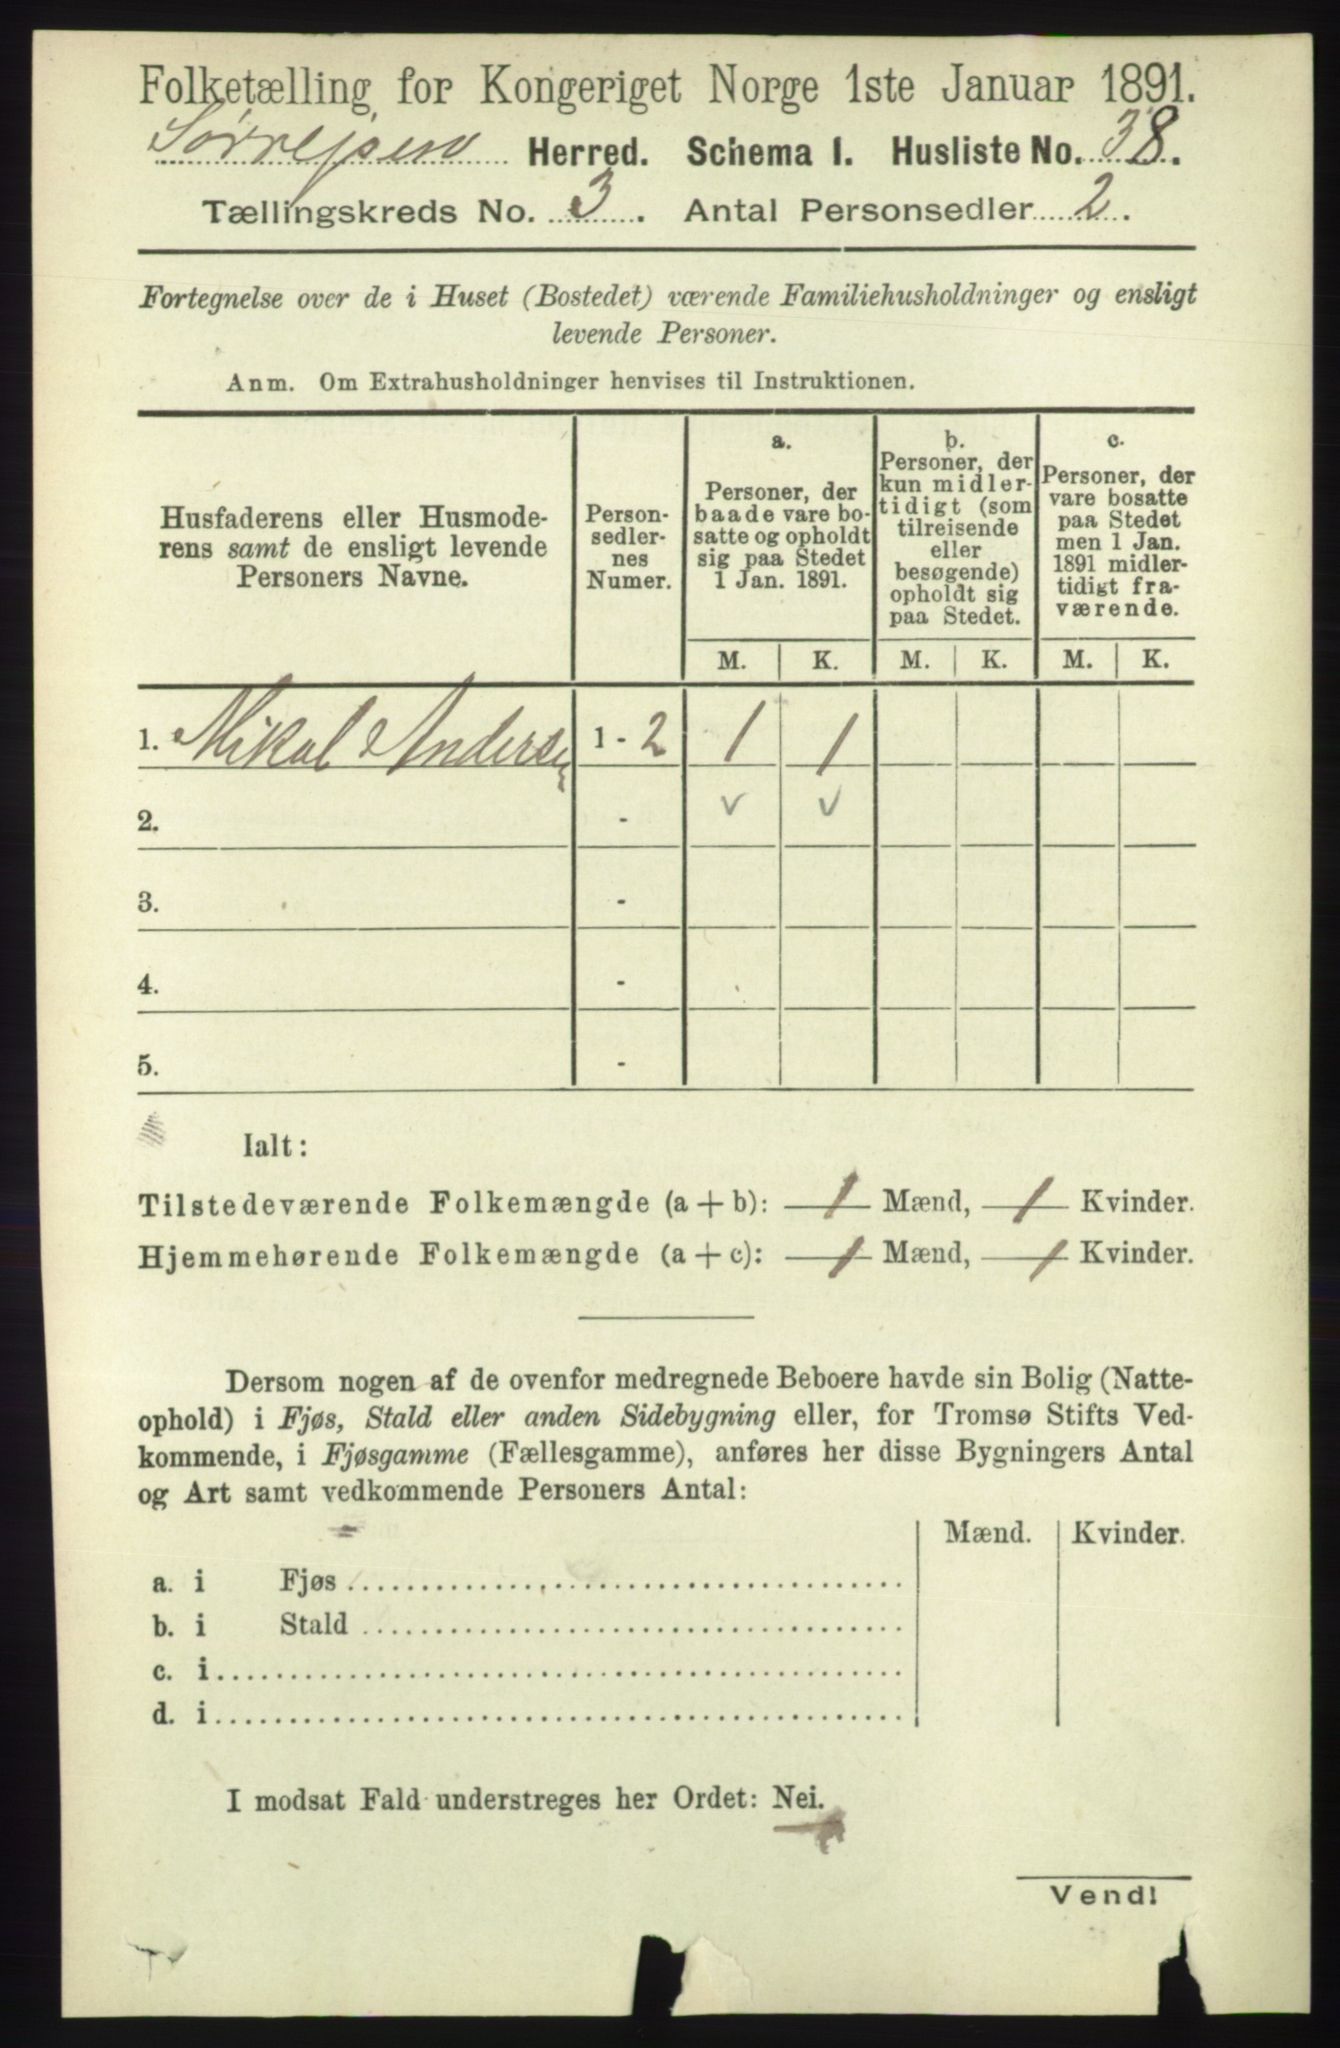 Folketælling for Kongeriget Norge 1ste Januar 1891.
Sørrejsen Herred. Schema 1. Husliste No. 38.
Tællingskreds No. 3. Antal Personsedler 2.
Fortegnelse over de i Huset (Bostedet) værende Familiehusholdninger og ensligt
levende Personer.
Anm. Om Extrahusholdninger henvises til Instruktionen.
Husfaderens eller Husmode-
rens samt de ensligt levende
Personers Navne.
Person-
sedler-
nes
Numer.
a.
Personer, der
baade vare bo-
satte og opholdt
sig paa Stedet
1 Jan. 1891.
b.
Personer, der
kun midler-
tidigt (som
tilreisende
eller
besøgende)
opholdt sig
paa Stedet.
c.
Personer, der
vare bosatte
paa Stedet
men 1 Jan.
1891 midler-
tidigt fra-
værende.
M. K. M. K. M. K.
1. Mikal Andersen 1 - 2 1 1
2. - v v
3. -
4. -
5. -
Ialt:
Tilstedeværende Folkemængde (a + b): 1 Mænd, 1 Kvinder.
Hjemmehørende Folkemængde (a + c): 1 Mænd, 1 Kvinder.
Dersom nogen af de ovenfor medregnede Beboere havde sin Bolig (Natte-
ophold) i Fjøs, Stald eller anden Sidebygning eller, for Tromsø Stifts Ved-
kommende, i Fjøsgamme (Fællesgamme), anføres her disse Bygningers Antal
og Art samt vedkommende Personers Antal:
Mænd. Kvinder.
a. i Fjøs
b. i Stald
c. i
d. i
I modsat Fald understreges her Ordet: Nei.
Vend!